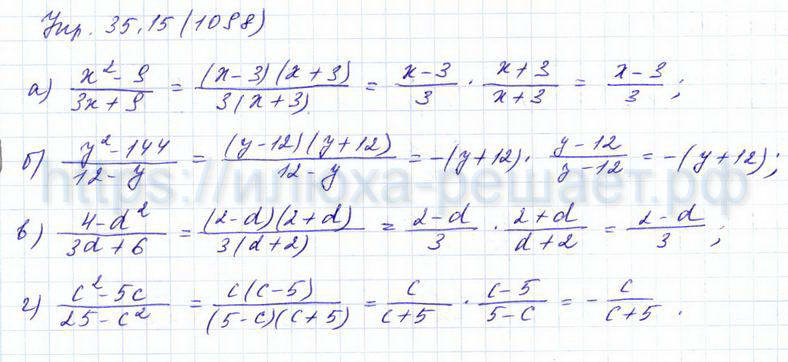 Упр. 35.15 (1098)
а) (x² - 9)/(3x + 9) = ((x - 3)(x + 3))/(3(x + 3)) = (x - 3)/3 · (x + 3)/(x + 3) = (x - 3)/3 ;
б) (y² - 144)/(12 - y) = ((y - 12)(y + 12))/(12 - y) = -(y + 12) · (y - 12)/(y - 12) = -(y + 12) ;
https://илюха-решает.рф
в) (4 - d²)/(3d + 6) = ((2 - d)(2 + d))/(3(d + 2)) = (2 - d)/3 · (2 + d)/(d + 2) = (2 - d)/3 ;
г) (c² - 5c)/(25 - c²) = (c(c - 5))/((5 - c)(c + 5)) = c/(c + 5) · (c - 5)/(5 - c) = - c/(c + 5) .